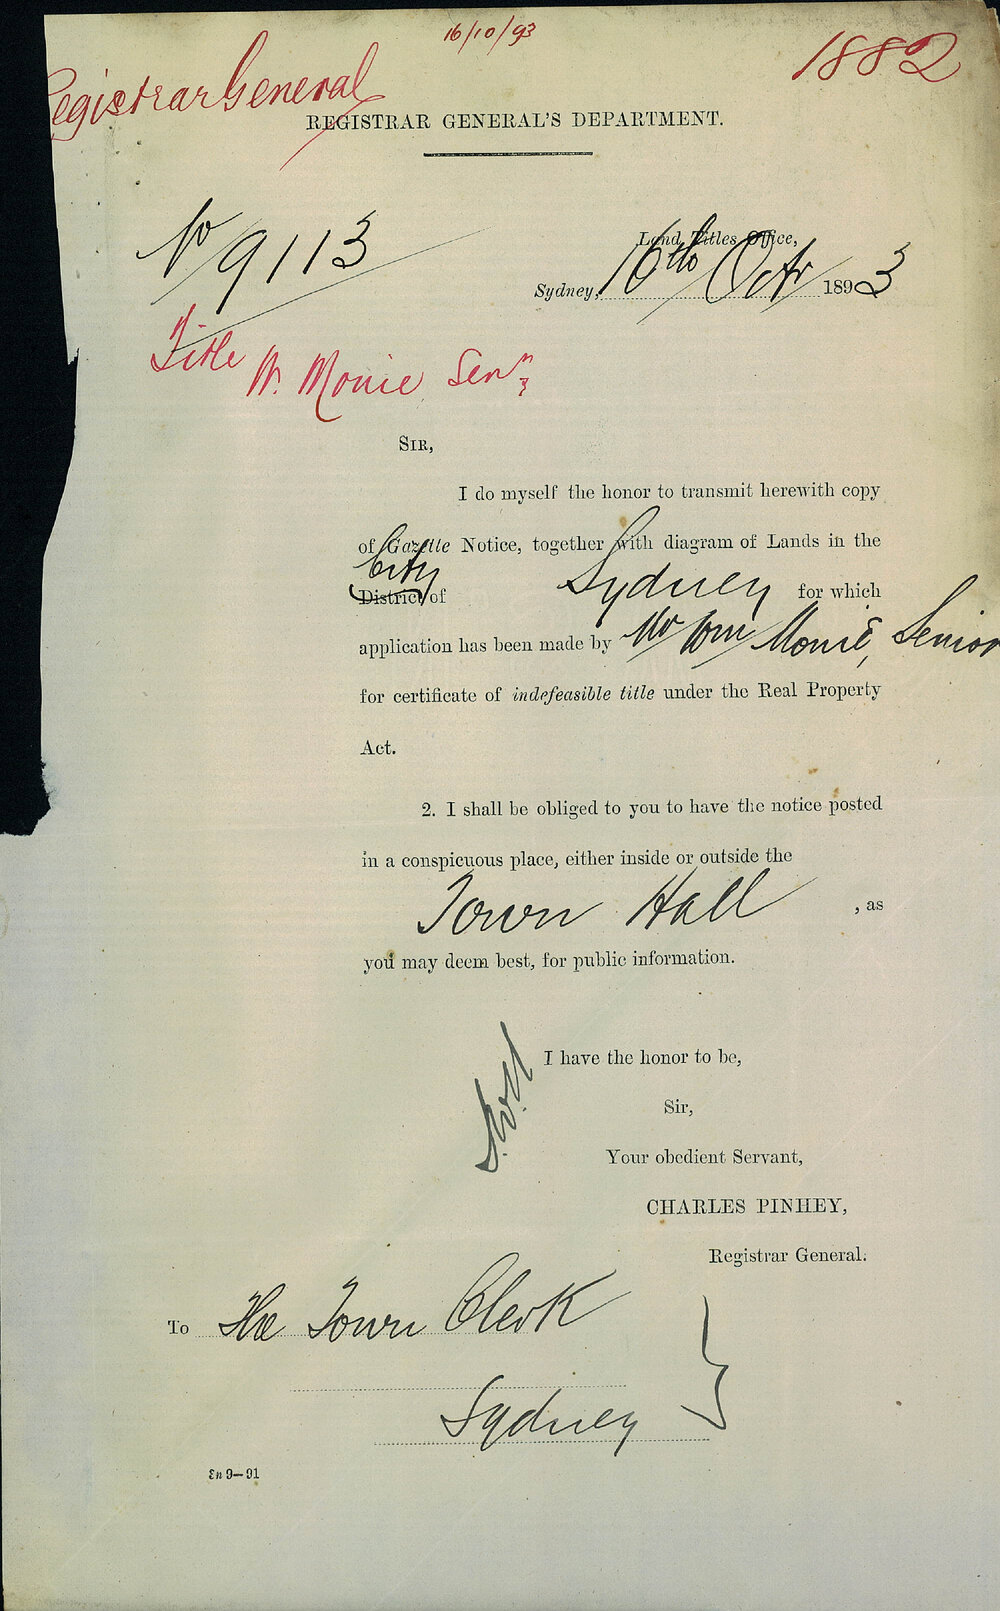 16/10/93
1882
Registrar General
REGISTRAR GENERAL'S DEPARTMENT.
No 9113
Land Titles Office,
Sydney, 16th Octr 1893
Title W. Monie Senr
SIR,
I do myself the honor to transmit herewith copy
of Gazette Notice, together with diagram of Lands in the
City
District of Sydney for which
application has been made by Mr Wm Monie, Senior
for certificate of indefeasible title under the Real Property
Act.
2. I shall be obliged to you to have the notice posted
in a conspicuous place, either inside or outside the
Town Hall , as
you may deem best, for public information.
I have the honor to be,
Sir,
Your obedient Servant,
CHARLES PINHEY,
Registrar General.
To The Town Clerk
Sydney
9—91